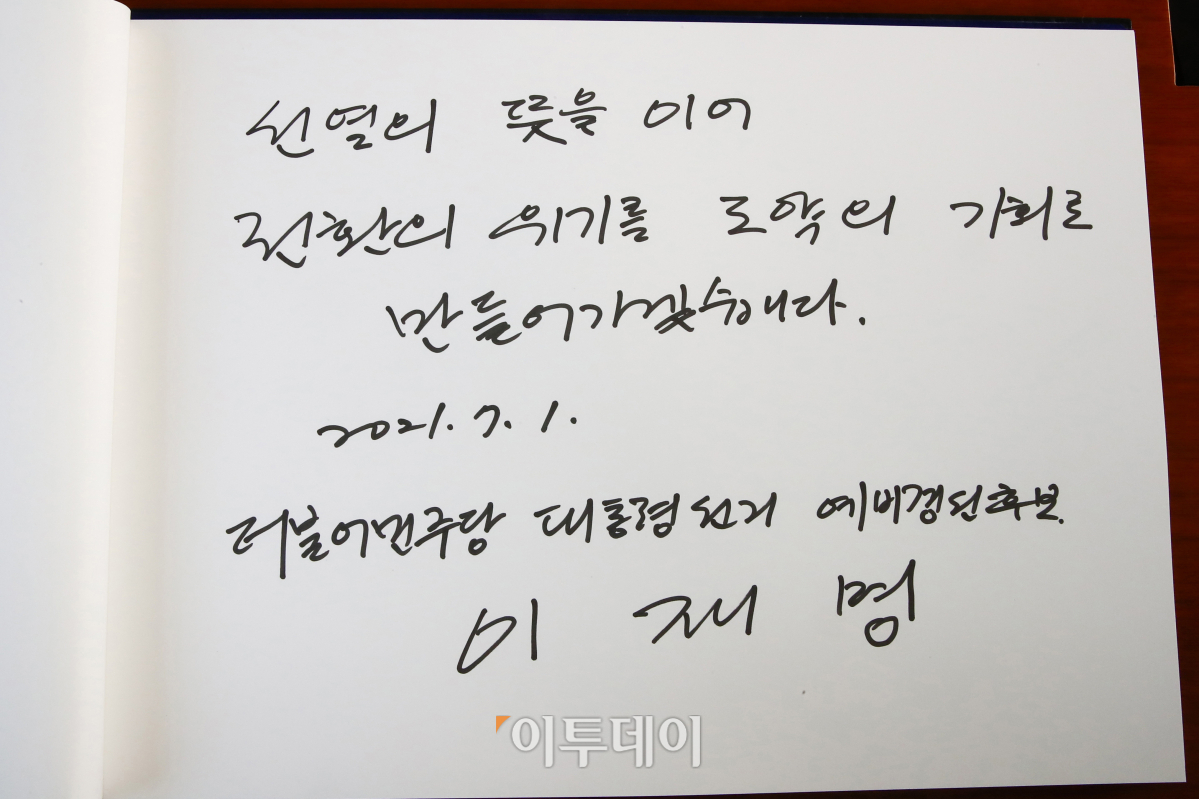 선열의 뜻을 이어
전환의 위기를 도약의 기회로
만들어가겠습니다.
2021. 7. 1.
더불어민주당 대통령선거 예비경선후보
이 재 명
이투데이